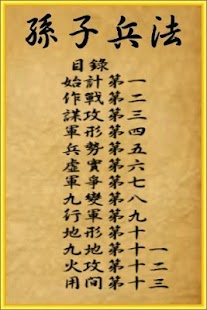 孫子兵法
目錄
始計第一
作戰第二
謀攻第三
軍形第四
兵勢第五
虛實第六
軍爭第七
九變第八
行軍第九
地形第十
九地第十一
火攻第十二
用間第十三